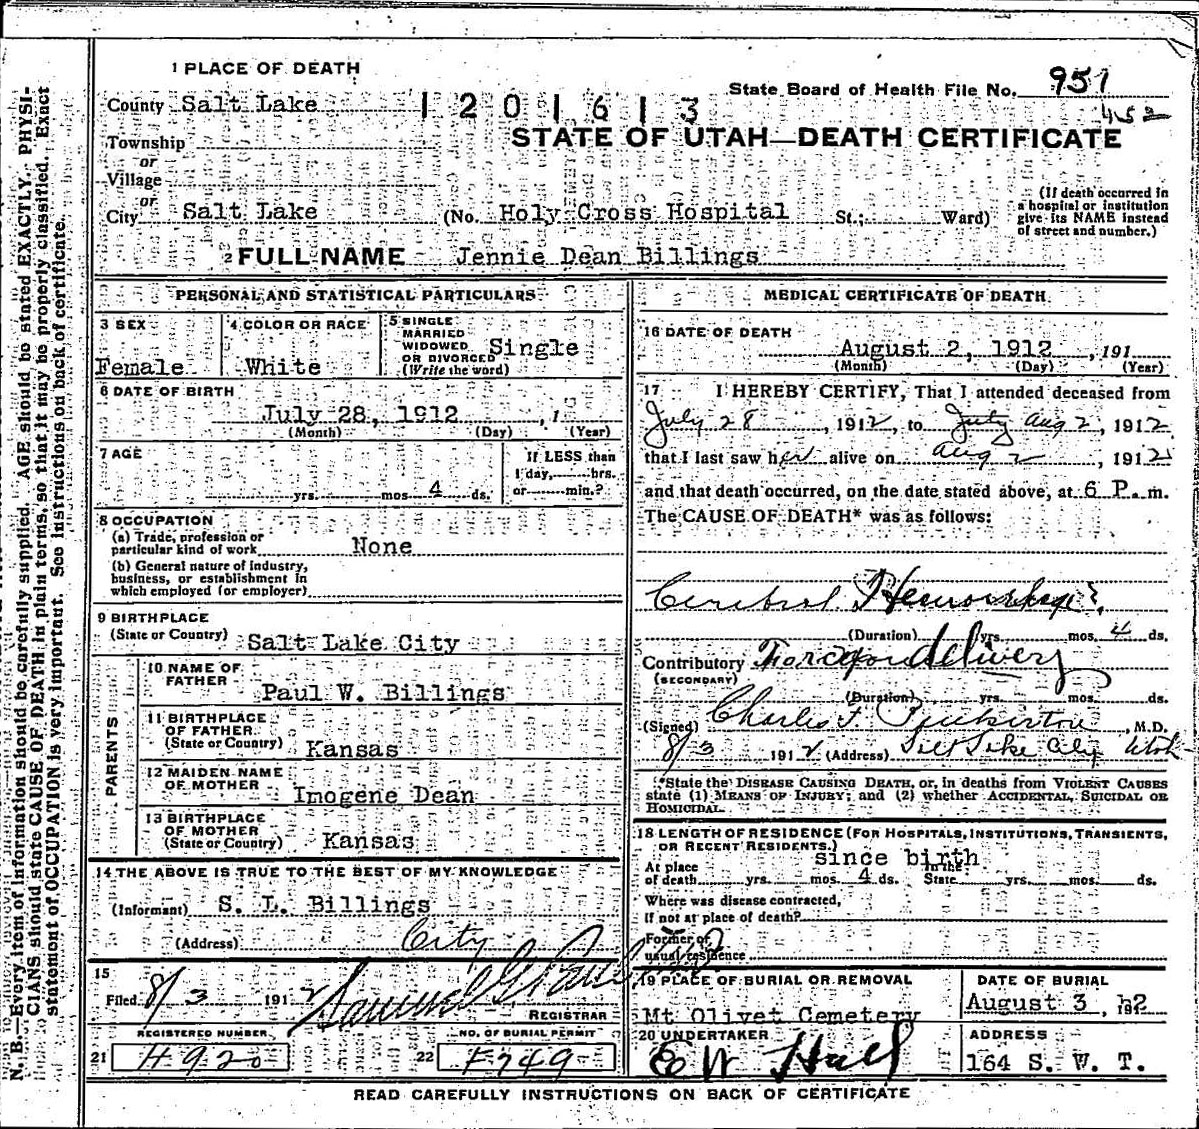 1 PLACE OF DEATH
County Salt Lake
1201613
State Board of Health File No. 951
452
STATE OF UTAH—DEATH CERTIFICATE
Township
or
Village
or
City Salt Lake (No. Holy Cross Hospital St.; Ward)
(If death occurred in a hospital or institution give its NAME instead of street and number.)
2 FULL NAME Jennie Dean Billings
PERSONAL AND STATISTICAL PARTICULARS
3 SEX
Female
4 COLOR OR RACE
White
5 SINGLE
MARRIED
WIDOWED
OR DIVORCED
(Write the word)
Single
6 DATE OF BIRTH
July 28, 1912, 1
(Month) (Day) (Year)
7 AGE
yrs. mos. 4 ds.
If LESS than
1 day, hrs.
or min.?
8 OCCUPATION
(a) Trade, profession or
particular kind of work None
(b) General nature of industry,
business, or establishment in
which employed (or employer)
9 BIRTHPLACE
(State or Country) Salt Lake City
PARENTS
10 NAME OF
FATHER
Paul W. Billings
11 BIRTHPLACE
OF FATHER
(State or Country) Kansas
12 MAIDEN NAME
OF MOTHER
Imogene Dean
13 BIRTHPLACE
OF MOTHER
(State or Country) Kansas
14 THE ABOVE IS TRUE TO THE BEST OF MY KNOWLEDGE
(Informant) S. L. Billings
(Address) City
15
Filed 8/3 1912 Samuel G. Paul
REGISTRAR
REGISTERED NUMBER
21 H920
NO. OF BURIAL PERMIT
22 F749
MEDICAL CERTIFICATE OF DEATH
16 DATE OF DEATH
August 2, 1912, 191
(Month) (Day) (Year)
17 I HEREBY CERTIFY, That I attended deceased from
July 28, 1912, to July Aug 2, 1912
that I last saw her alive on Aug 2, 1912
and that death occurred, on the date stated above, at 6 P.m.
The CAUSE OF DEATH* was as follows:
Cerebral Hemorrhage
(Duration) yrs. mos. 4 ds.
Contributory Forceps delivery
(SECONDARY)
(Duration) yrs. mos. ds.
(Signed) Charles F. Pinkerton, M.D.
8/3 1912 (Address) Salt Lake City Utah
*State the DISEASE CAUSING DEATH, or, in deaths from VIOLENT CAUSES
state (1) MEANS OF INJURY; and (2) whether ACCIDENTAL, SUICIDAL OR
HOMICIDAL.
18 LENGTH OF RESIDENCE (FOR HOSPITALS, INSTITUTIONS, TRANSIENTS,
OR RECENT RESIDENTS.)
since birth
At place
of death yrs. mos. 4 ds.
In the
State yrs. mos. ds.
Where was disease contracted,
If not at place of death?
Former or
usual residence
19 PLACE OF BURIAL OR REMOVAL
Mt Olivet Cemetery
DATE OF BURIAL
August 3, 1912
20 UNDERTAKER
E W Hall
ADDRESS
164 S. W. T.
READ CAREFULLY INSTRUCTIONS ON BACK OF CERTIFICATE
N. B.—Every item of information should be carefully supplied. AGE should be stated EXACTLY. PHYSI-
CIANS should state CAUSE OF DEATH in plain terms, so that it may be properly classified. Exact
statement of OCCUPATION is very important. See instructions on back of certificate.